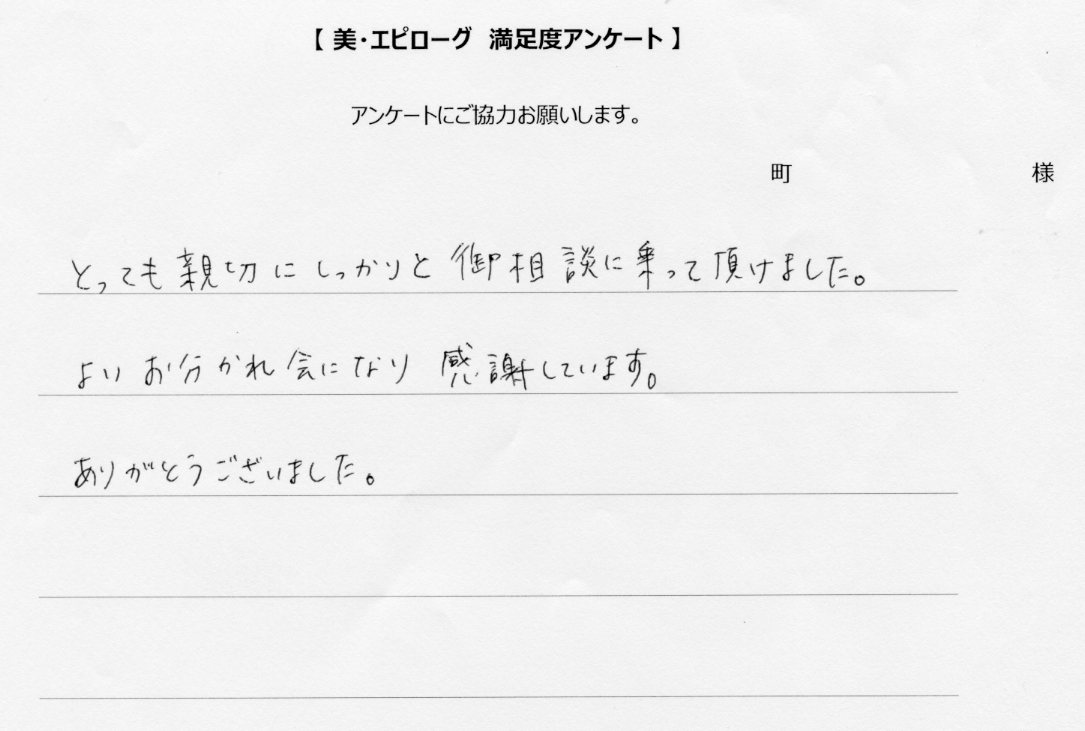 【 美・エピローグ 満足度アンケート 】
アンケートにご協力お願いします。
町 様
とっても親切にしっかりと御相談に乗って頂けました。
よいお分かれ会になり感謝しています。
ありがとうございました。